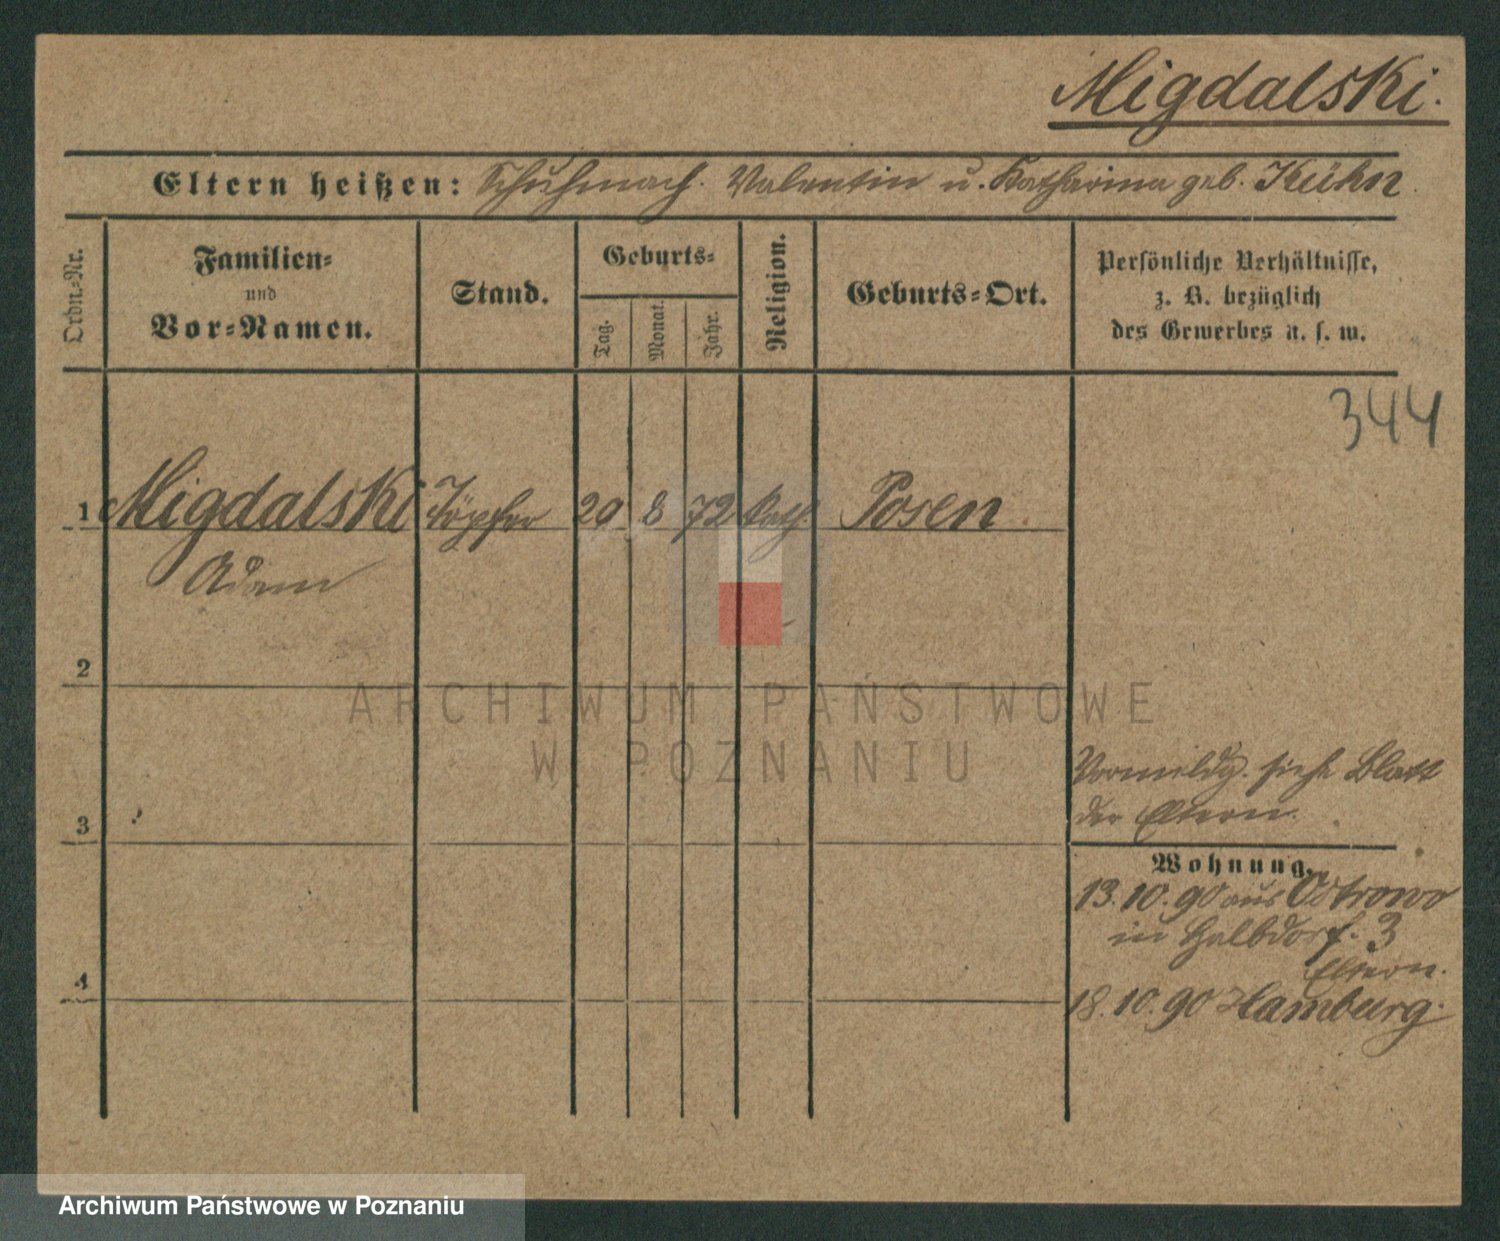 Migdalski.
Eltern heißen: Schuhmach. Valentin u. Katharina geb. Kühn
Ordn.-Nr.
Familien-
und
Vor-Namen.
Stand.
Geburts-
Tag.
Monat.
Jahr.
Religion.
Geburts-Ort.
Persönliche Verhältnisse,
z. B. bezüglich
des Gewerbes u. s. w.
344
1 Migdalski Töpfer 29 8 72 kath. Posen
Adam
2
ARCHIWUM PAŃSTWOWE
W POZNANIU
Vormeldg. siehe Blatt
der Eltern.
3
Wohnung.
13.10.90 aus Ostrowo
in Halbdorf. 3
Eltern.
4
18.10.90 Hamburg.
Archiwum Państwowe w Poznaniu